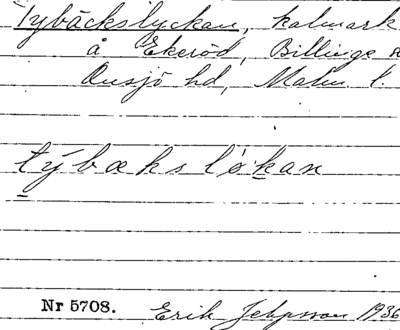 Tybäckslyckan, kalmark
å Ekeröd, Billinge
Onsjö hd, Malm. l.
týbæksløkan
Nr 5708. Erik Jeppsson 1936